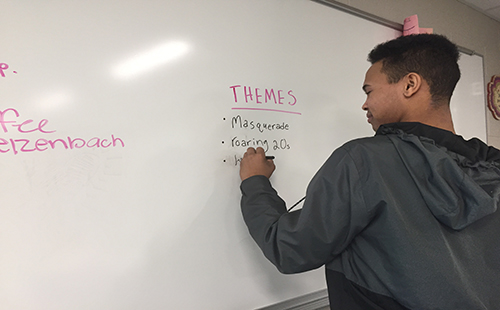 P.
ffee
elzenbach
THEMES
• Masquerade
• roaring 20s